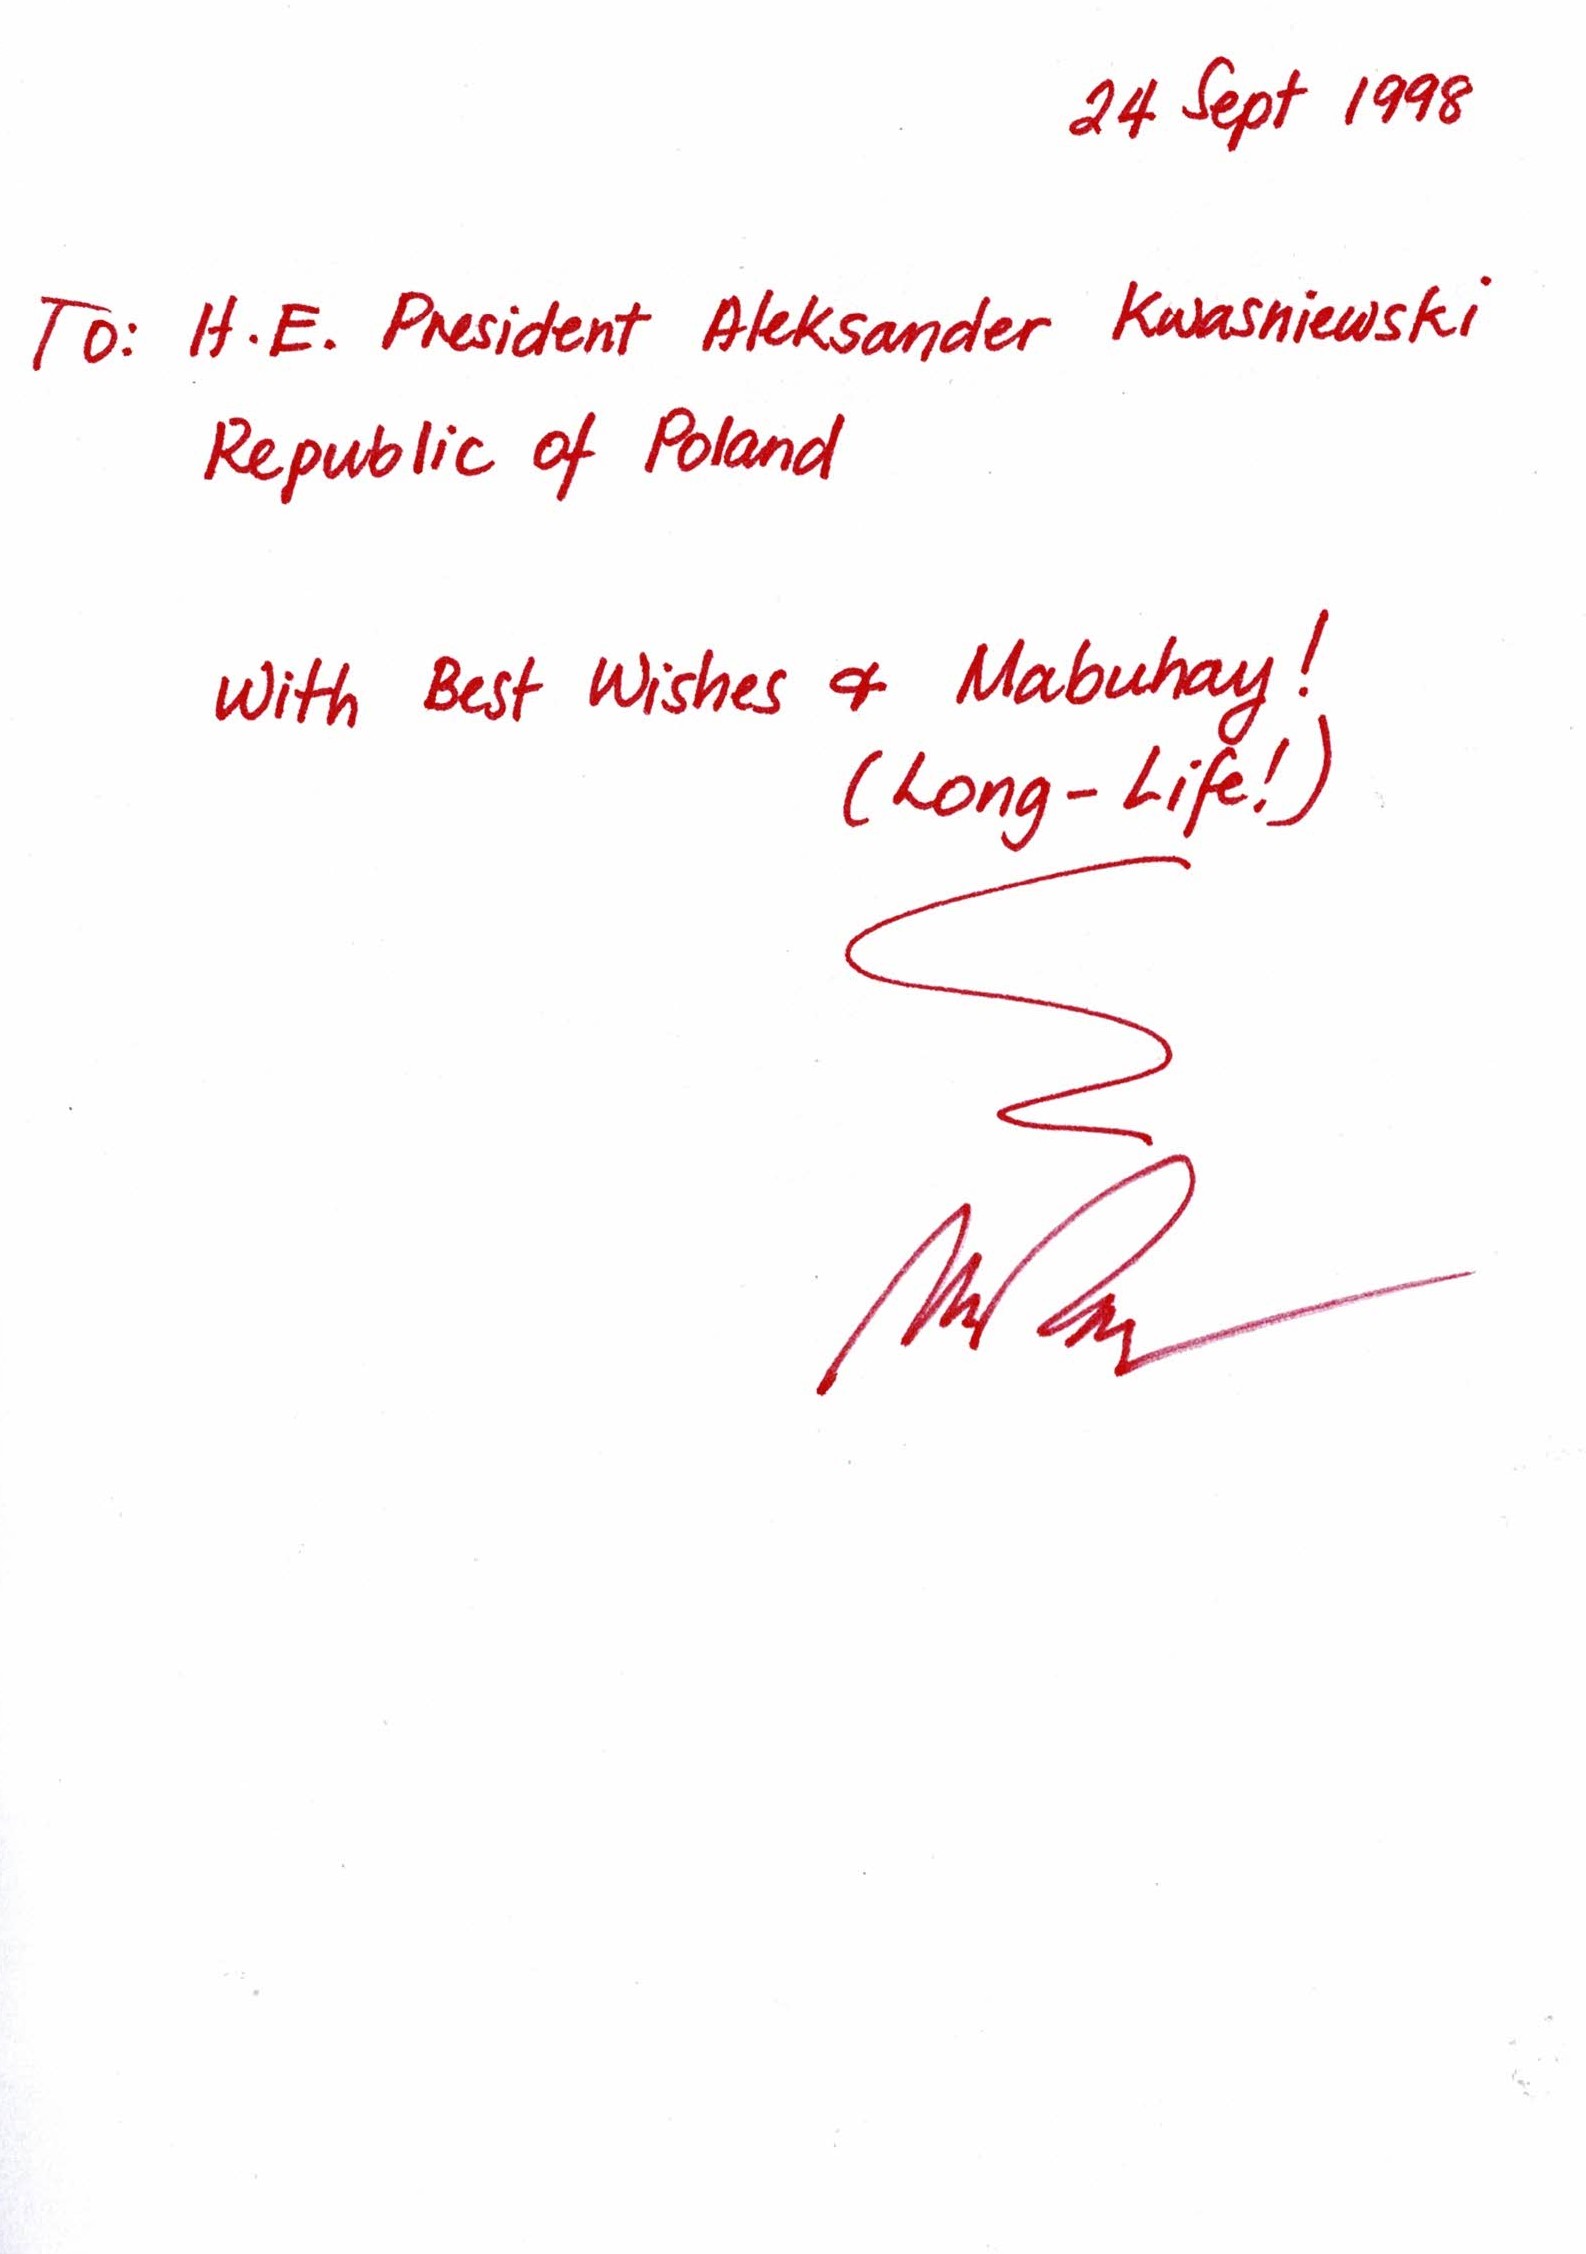 24 Sept 1998
To: H.E. President Aleksander Kwasniewski
Republic of Poland
With Best Wishes & Mabuhay!
(Long-Life!)